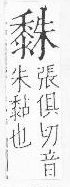 張俱切音
朱黏也